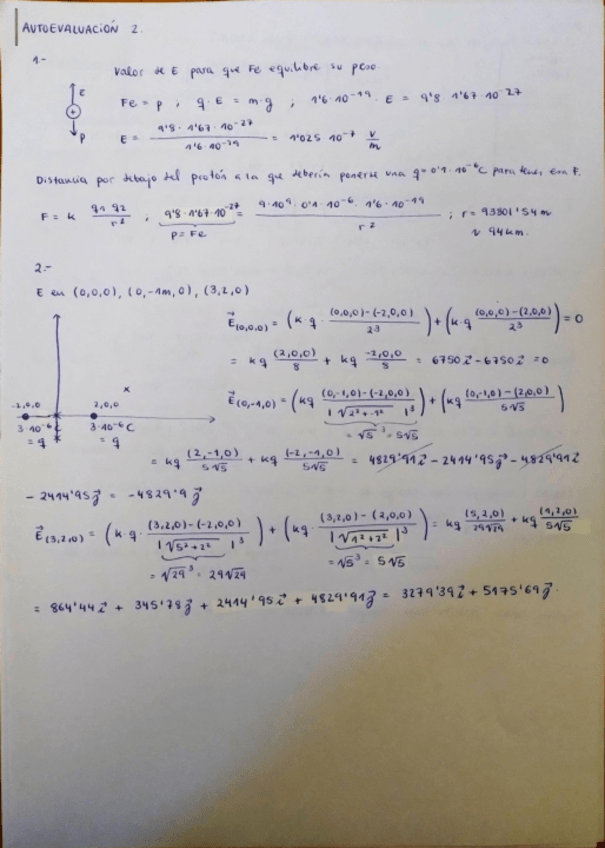 AUTOEVALUACIÓN 2.
1.-
Valor de E para que Fe equilibre su peso.
E
+
P
Fe = p ; q · E = m · g ; 1'6 · 10⁻¹⁹ · E = 9'8 · 1'67 · 10⁻²⁷
E = 9'8 · 1'67 · 10⁻²⁷ / 1'6 · 10⁻¹⁹ = 1'025 · 10⁻⁷ V/m
Distancia por debajo del protón a la que debería ponerse una q = 0'1 · 10⁻⁶ C para tener esa F.
F = k q₁ q₂ / r² ; 9'8 · 1'67 · 10⁻²⁷ = 9 · 10⁹ · 0'1 · 10⁻⁶ · 1'6 · 10⁻¹⁹ / r² ; r = 93801'54 m
P = Fe
~ 94 km.
2.-
E en (0,0,0), (0,-1m,0), (3,2,0)
E⃗(0,0,0) = (k · q · (0,0,0)-(-2,0,0) / 2³) + (k · q (0,0,0)-(2,0,0) / 2³) = 0
= kq (2,0,0) / 8 + kq -2,0,0 / 8 = 6750 i⃗ - 6750 i⃗ = 0
x
-2,0,0
2,0,0
3 · 10⁻⁶ C
= q
3 · 10⁻⁶ C
= q
E⃗(0,-1,0) = (kq (0,-1,0)-(-2,0,0) / |√2²+-1²|³) + (kq (0,-1,0)-(2,0,0) / 5√5)
= √5³ = 5√5
= kq (2,-1,0) / 5√5 + kq (-2,-1,0) / 5√5 = 4829'91 i⃗ - 2414'95 j⃗ - 4829'91 i⃗
- 2414'95 j⃗ = -4829'9 j⃗
E⃗(3,2,0) = (k · q · (3,2,0)-(-2,0,0) / |√5²+2²|³) + (kq · (3,2,0)-(2,0,0) / |√1²+2²|³) = kq (5,2,0) / 29√29 + kq (1,2,0) / 5√5
= √29³ = 29√29
= √5³ = 5√5
= 864'44 i⃗ + 345'78 j⃗ + 2414'95 i⃗ + 4829'91 j⃗ = 3279'39 i⃗ + 5175'69 j⃗.